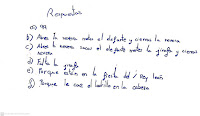 Respuestas
a) 
b) Abres la nevera metes el elefante y cierras la nevera
c) Abres la nevera sacas el elefante metes la girafa y cierras
nevera
d) Falta la girafa
e) Porque están en la fiesta del Rey león
f) Porque le cae el ladrillo en la cabeza